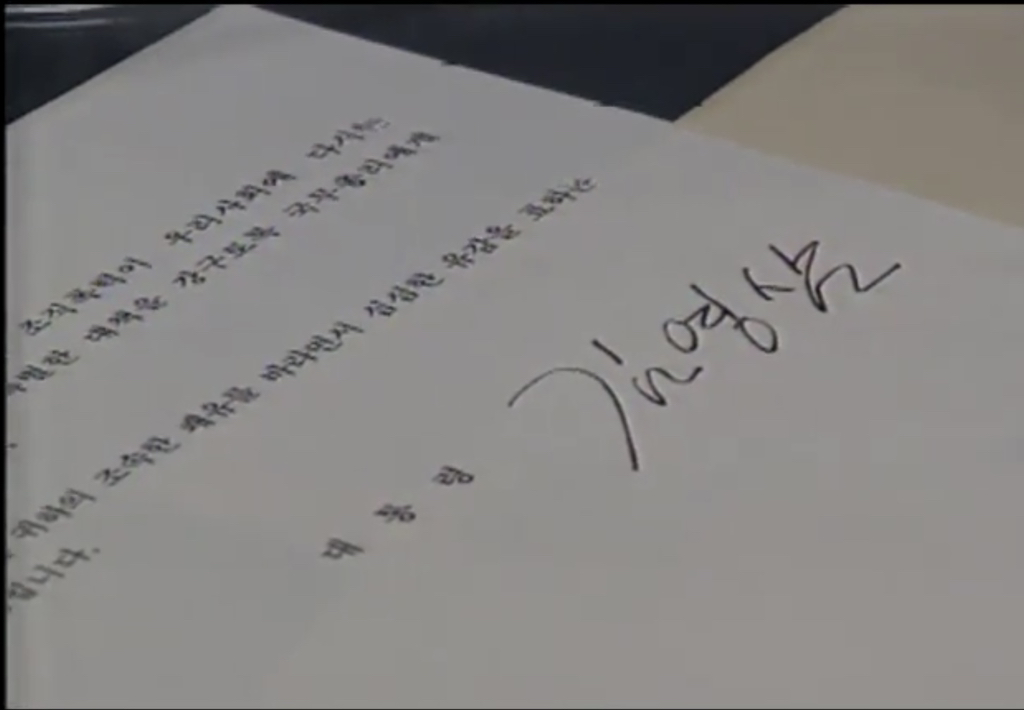 조직폭력이 우리사회에 다시는
특별한 대책을 강구토록 국무총리에게
귀하의 조속한 쾌유를 바라면서 심심한 유감을 표하는
입니다.
대 통 령 김영삼